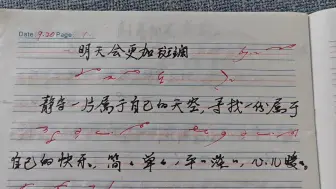 Date: 9.20 Page:
明天会更加斑斓
静守一片属于自己的天空，寻找一份属于
自己的快乐。简简单单，平平淡淡，心儿暖暖。